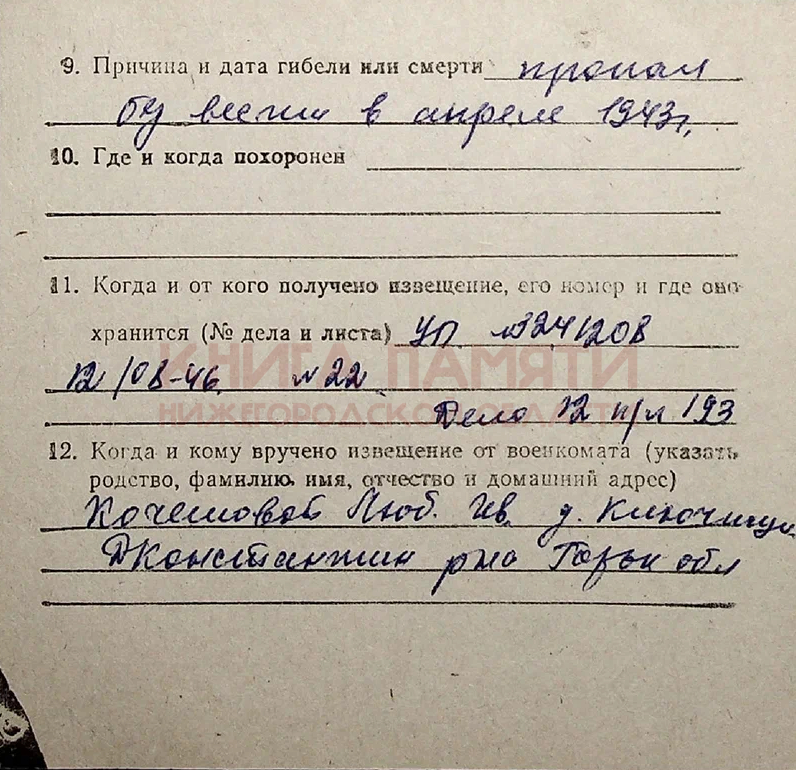 9. Причина и дата гибели или смерти пропал
бу вести в апреле 1943г.
10. Где и когда похоронен
11. Когда и от кого получено извещение, его номер и где оно
хранится (№ дела и листа) УП №324/208
12/08-46 №22
КНИГА ПАМЯТИ
НИЖЕГОРОДСКОЙ ОБЛАСТИ
Дело 12 п/л 193
12. Когда и кому вручено извещение от военкомата (указать
родство, фамилию, имя, отчество и домашний адрес)
Кочешовой Люб. Ив. д. Ключищи
ДКонстантин рно Горьк обл